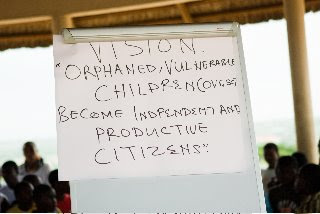 VISION.
"ORPHANED, VULNERABLE
CHILDREN (OVCs)
BECOME INDPENDENT AND
PRODUCTIVE
CITIZENS"